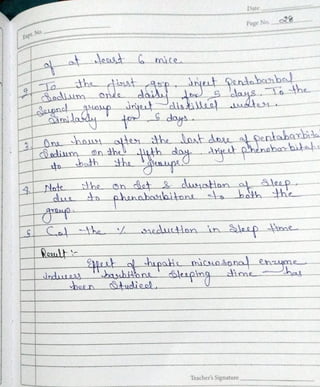 Date
Expt. No.
Page No. 028
of at least 6 mice.
2. To the first grp, inject Pentobarbal
Sodium once daily for 5 days. To the
Second group inject distilled water
Similarly for 5 days.
3. One hour after the last dose of pentabarbito
Sodium on the fifth day inject phenobarbital
to both the groups
4. Note the on Set & duration of Sleep.
due to phenobarbitone to both the
group.
5. Cal the % reduction in Sleep time
Result :-
Effect of hepatic microsonal enzyme
inducess barbitone Sleeping time has
been Studied.
Teacher's Signature